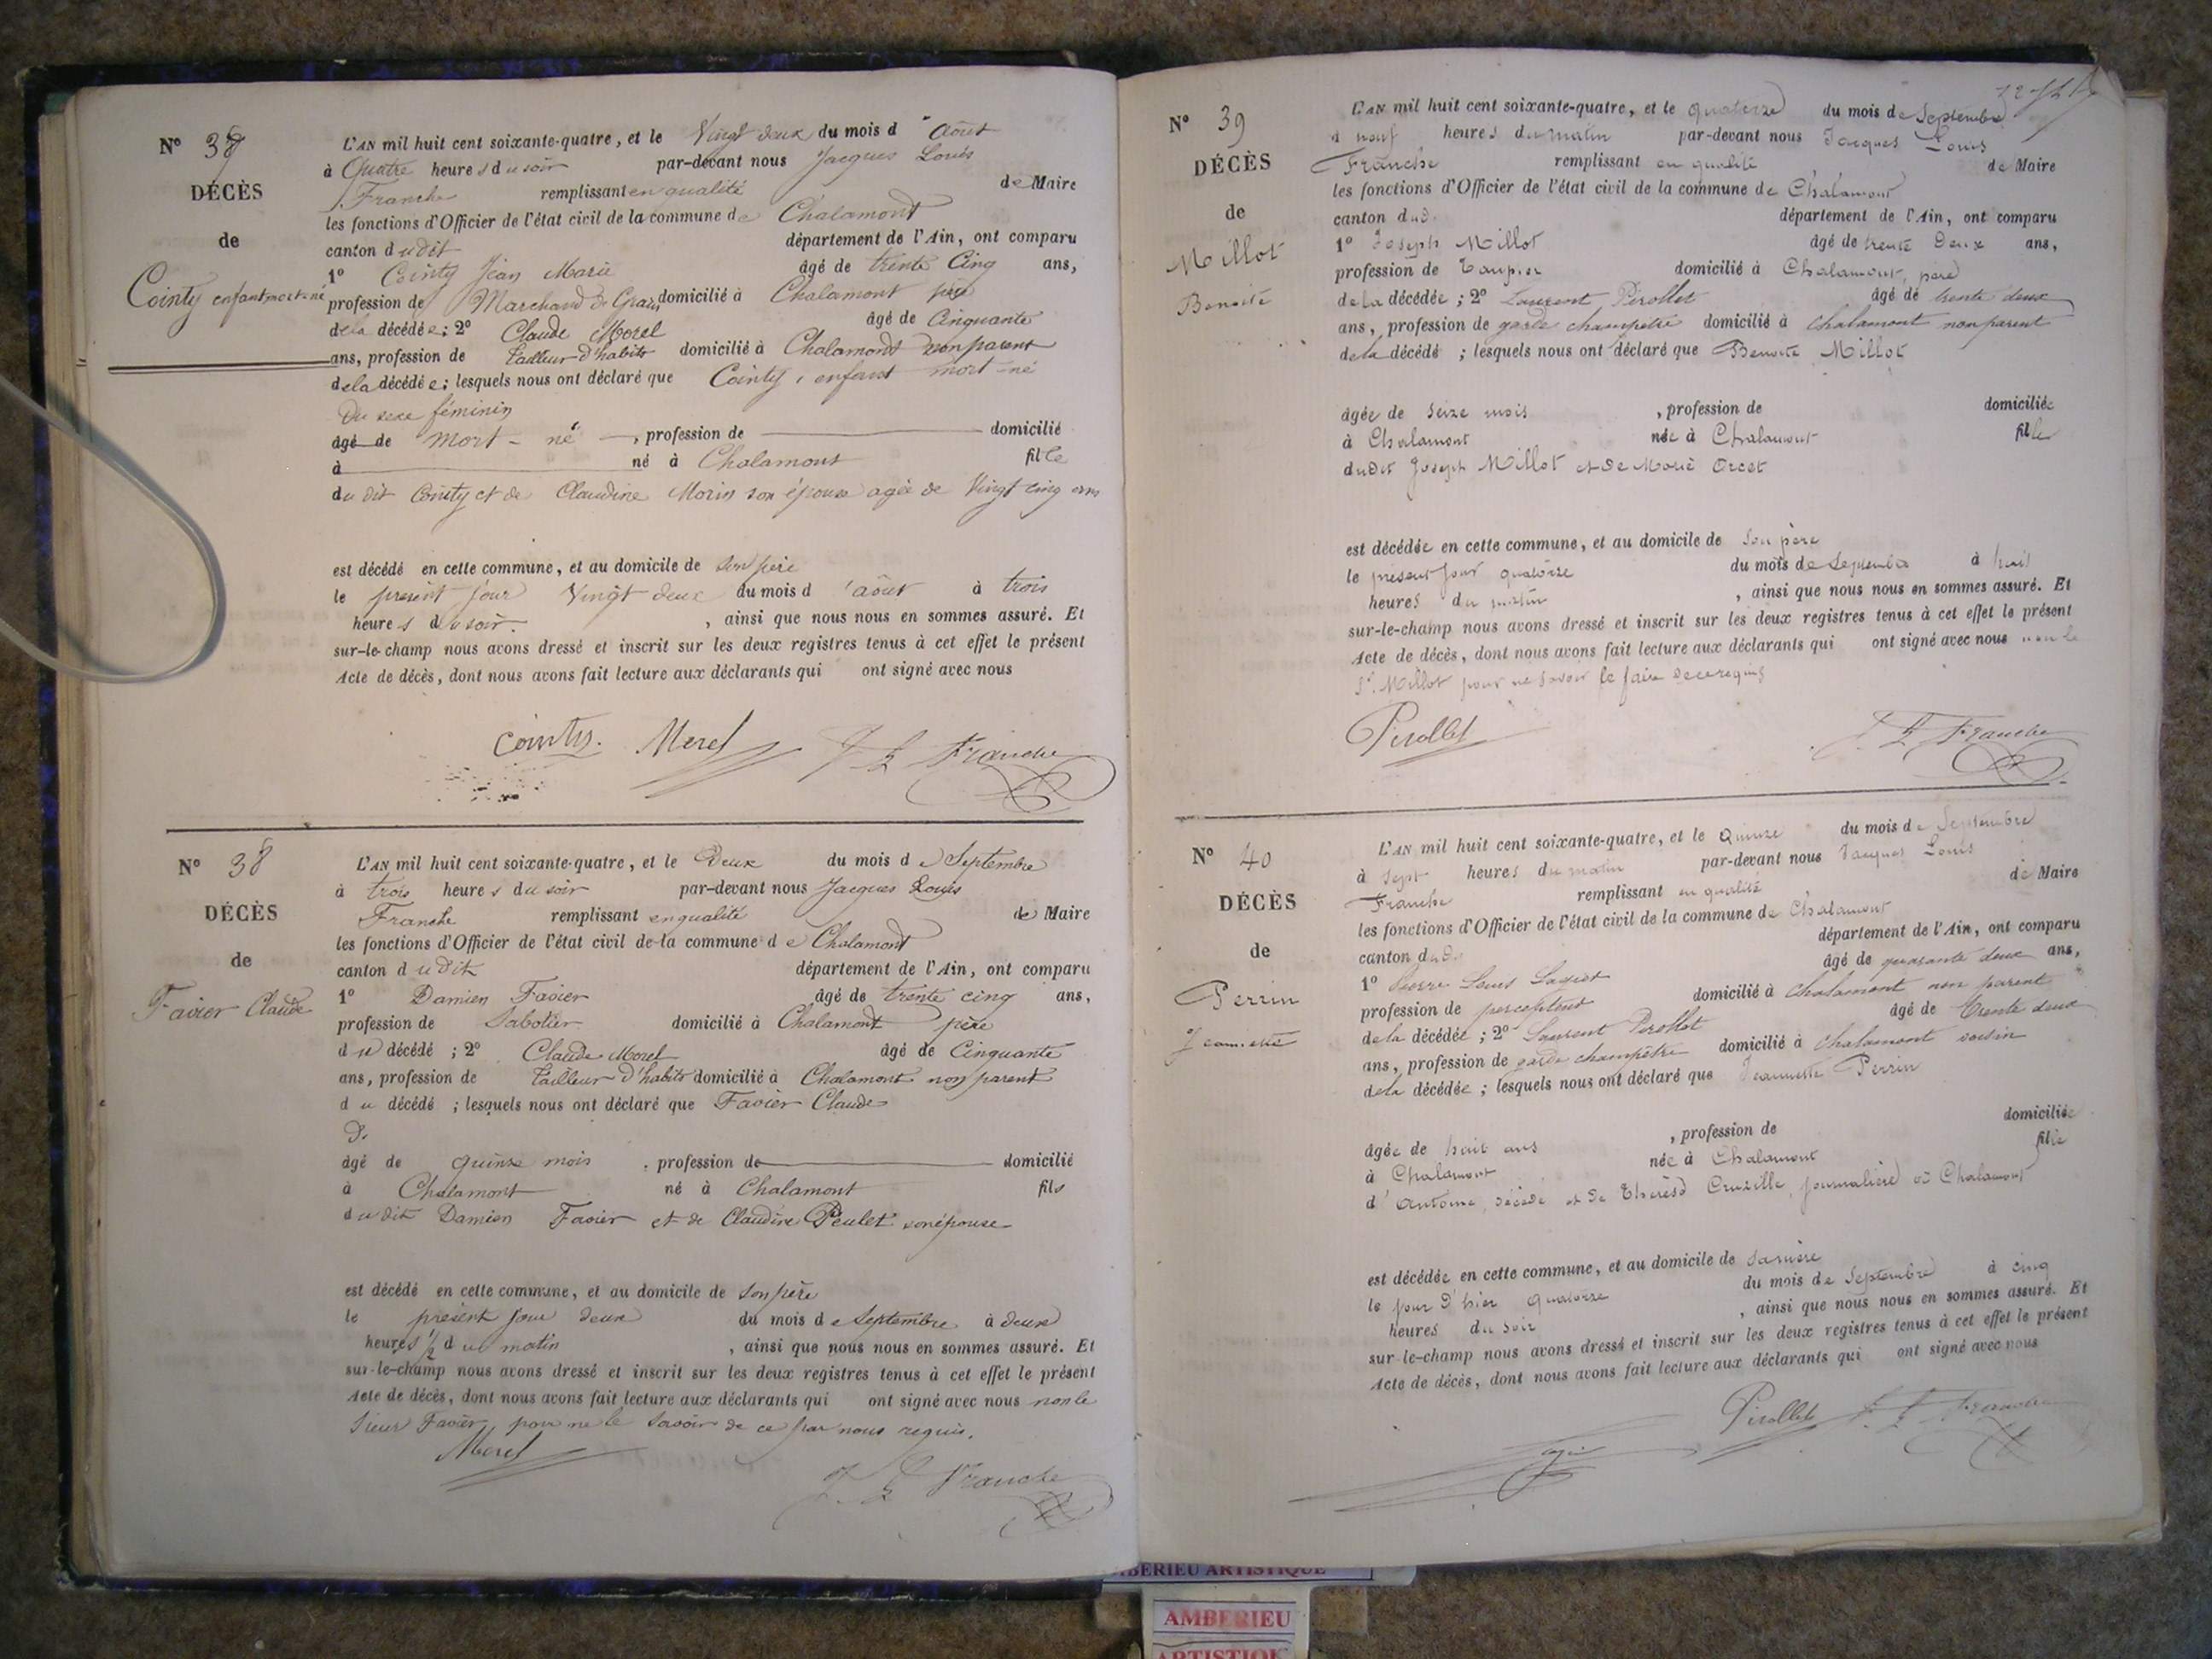 N° 37
DÉCÈS
de
Cointy enfant mort-né
L'AN mil huit cent soixante-quatre, et le Vingt deux du mois d'août
à Quatre heures du soir par-devant nous Jacques Louis
Franche remplissant en qualité de Maire
les fonctions d'Officier de l'état civil de la commune de Chalamont
canton dudit département de l'Ain, ont comparu
1° Cointy Jean Marie âgé de trente Cinq ans,
profession de Marchand de Grains domicilié à Chalamont père
de la décédée; 2° Claude Morel âgé de Cinquante
ans, profession de tailleur d'habits domicilié à Chalamont non parent
de la décédée; lesquels nous ont déclaré que Cointy, enfant mort-né
Du sexe féminin
âgé de mort-né, profession de domicilié
à né à Chalamont fille
du dit Cointy et de Claudine Morin son épouse agée de Vingt cinq ans
est décédé en cette commune, et au domicile de son père
le présent jour Vingt deux du mois d'août à trois
heures du soir, ainsi que nous nous en sommes assuré. Et
sur-le-champ nous avons dressé et inscrit sur les deux registres tenus à cet effet le présent
Acte de décès, dont nous avons fait lecture aux déclarants qui ont signé avec nous
Cointy. Morel J L Franche
N° 38
DÉCÈS
de
Favier Claude
L'AN mil huit cent soixante-quatre, et le Deux du mois de Septembre
à trois heures du soir par-devant nous Jacques Louis
Franche remplissant en qualité de Maire
les fonctions d'Officier de l'état civil de la commune de Chalamont
canton dudit département de l'Ain, ont comparu
1° Damien Favier âgé de trente cinq ans,
profession de Sabotier domicilié à Chalamont père
du décédé; 2° Claude Morel âgé de Cinquante
ans, profession de tailleur d'habits domicilié à Chalamont non parent
du décédé; lesquels nous ont déclaré que Favier Claude
D.
âgé de quinze mois, profession de domicilié
à Chalamont né à Chalamont fils
du dit Damien Favier et de Claudine Peulet son épouse
est décédé en cette commune, et au domicile de son père
le présent jour deux du mois de Septembre à deux
heures 1/2 du matin, ainsi que nous nous en sommes assuré. Et
sur-le-champ nous avons dressé et inscrit sur les deux registres tenus à cet effet le présent
Acte de décès, dont nous avons fait lecture aux déclarants qui ont signé avec nous non le
sieur Favier, pour ne le savoir de ce par nous requis.
Morel
J. L Franche
N° 39
DÉCÈS
de
Millot
Benoite
L'AN mil huit cent soixante-quatre, et le quatorze du mois de Septembre
à neuf heures du matin par-devant nous Jacques Louis
Franche remplissant en qualité de Maire
les fonctions d'Officier de l'état civil de la commune de Chalamont
canton dud. département de l'Ain, ont comparu
1° Joseph Millot âgé de trente Deux ans,
profession de Taupier domicilié à Chalamont, père
de la décédée; 2° Laurent Pirollet âgé de trente deux
ans, profession de garde champêtre domicilié à Chalamont non parent
de la décédé; lesquels nous ont déclaré que Benoite Millot
âgée de seize mois, profession de domiciliée
à Chalamont née à Chalamont fille
dudit Joseph Millot et de Marie Orcet
est décédée en cette commune, et au domicile de son père
le présent jour quatorze du mois de Septembre à huit
heures du matin, ainsi que nous nous en sommes assuré. Et
sur-le-champ nous avons dressé et inscrit sur les deux registres tenus à cet effet le présent
Acte de décès, dont nous avons fait lecture aux déclarants qui ont signé avec nous non le
Sr. Millot pour ne savoir le faire de ce requis
Pirollet J L Franche
N° 40
DÉCÈS
de
Perrin
Jeannette
L'AN mil huit cent soixante-quatre, et le Quinze du mois de Septembre
à sept heures du matin par-devant nous Jacques Louis
Franche remplissant en qualité de Maire
les fonctions d'Officier de l'état civil de la commune de Chalamont
canton dud. département de l'Ain, ont comparu
1° Pierre Louis âgé de quarante deux ans,
profession de percepteur domicilié à Chalamont non parent
de la décédée; 2° Laurent Pirollet âgé de Trente deux
ans, profession de garde champêtre domicilié à Chalamont voisin
de la décédée; lesquels nous ont déclaré que Jeannette Perrin
âgée de huit ans, profession de domiciliée
à Chalamont née à Chalamont fille
d'Antoine, décédé et de Thérèse Cruzille, journalière à Chalamont
est décédée en cette commune, et au domicile de sa mère
le jour d'hier quatorze du mois de Septembre à cinq
heures du soir, ainsi que nous nous en sommes assuré. Et
sur-le-champ nous avons dressé et inscrit sur les deux registres tenus à cet effet le présent
Acte de décès, dont nous avons fait lecture aux déclarants qui ont signé avec nous
Pirollet J L Franche
AMBERIEU ARTISTIQUE
AMBERIEU
ARTISTIQUE